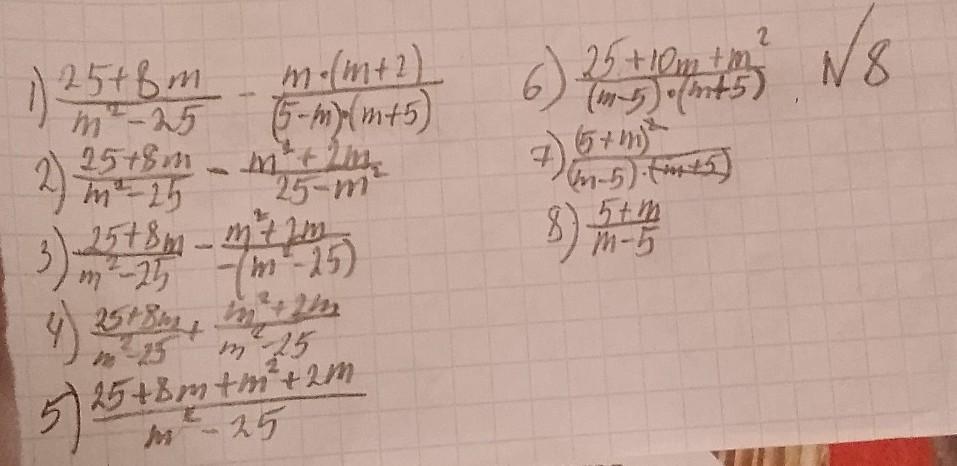 №8
1) (25+8m)/(m²-25) - (m·(m+2))/((5-m)·(m+5))
2) (25+8m)/(m²-25) - (m²+2m)/(25-m²)
3) (25+8m)/(m²-25) - (m²+2m)/(-(m²-25))
4) (25+8m)/(m²-25) + (m²+2m)/(m²-25)
5) (25+8m+m²+2m)/(m²-25)
6) (25+10m+m²)/((m-5)·(m+5))
7) (5+m)²/((m-5)·(m+5))
8) (5+m)/(m-5)